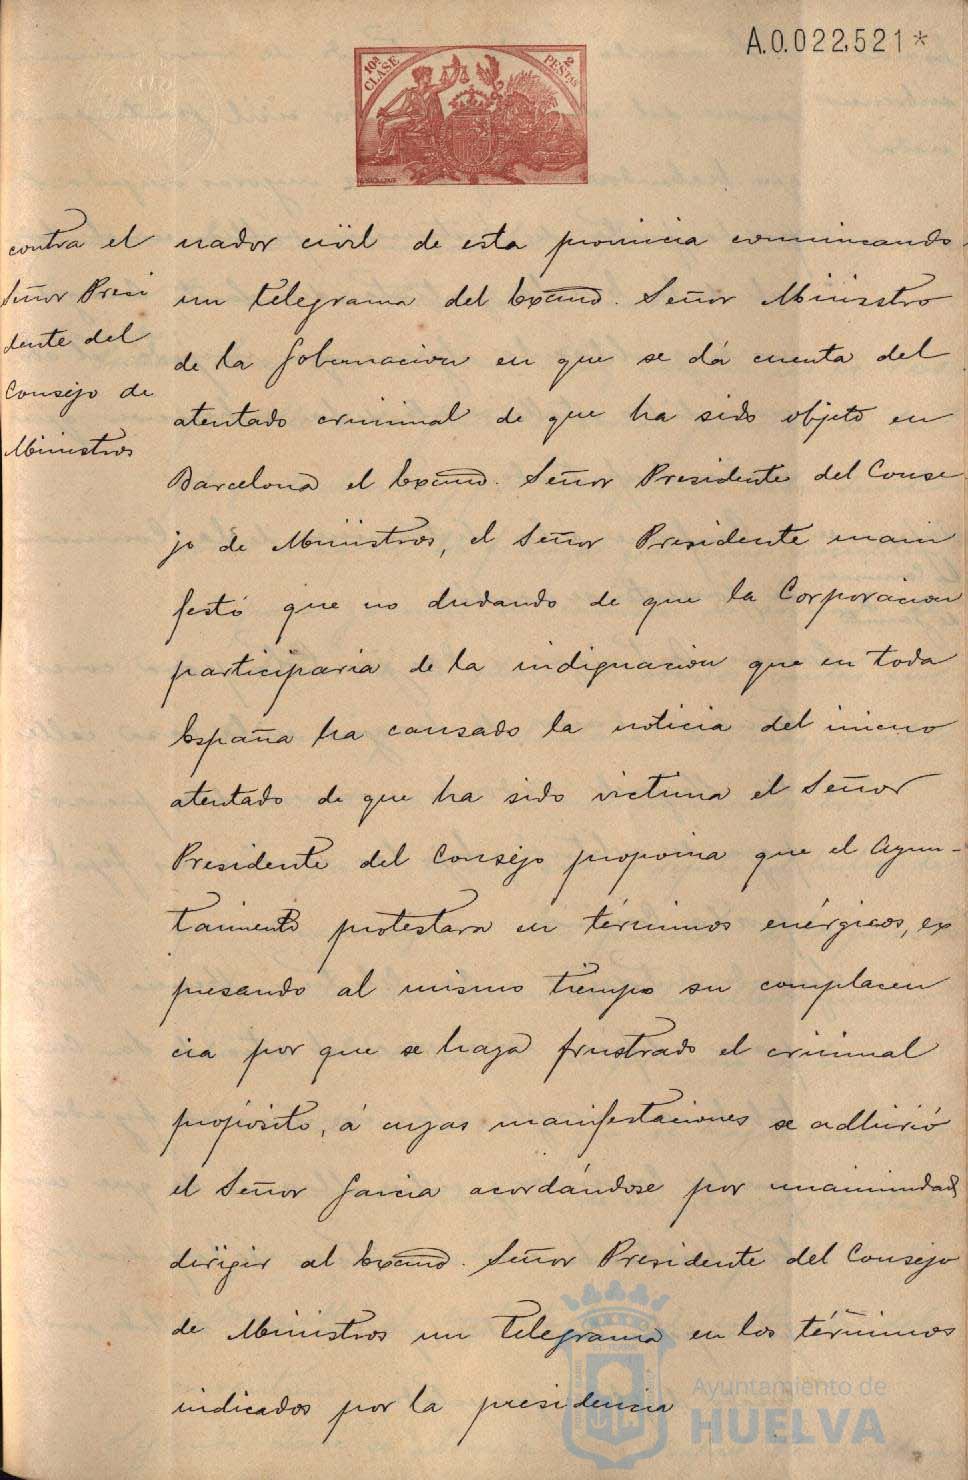 A.0.022,521*
10ª CLASE
2 PESTAS
contra el
Señor Presi
dente del
Consejo de
Ministros
nador civil de esta provincia comunicando
un telegrama del Excmo. Señor Ministro
de la Gobernacion en que se dá cuenta del
atentado criminal de que ha sido objeto en
Barcelona el Excmo. Señor Presidente del Conse
jo de Ministros, el Señor Presidente mani
festó que no dudando de que la Corporacion
participaria de la indignacion que en toda
España ha causado la noticia del inicuo
atentado de que ha sido victima el Señor
Presidente del Consejo proponia que el Ayun-
tamiento protestara en términos enérgicos, ex
presando al mismo tiempo su complacen
cia por que se haya frustrado el criminal
propósito, á cuyas manifestaciones se adhirió
el Señor Garcia acordándose por unanimidad
dirigir al Excmo. Señor Presidente del Consejo
de Ministros un telegrama en los términos
indicados por la presidencia
Ayuntamiento de
HUELVA